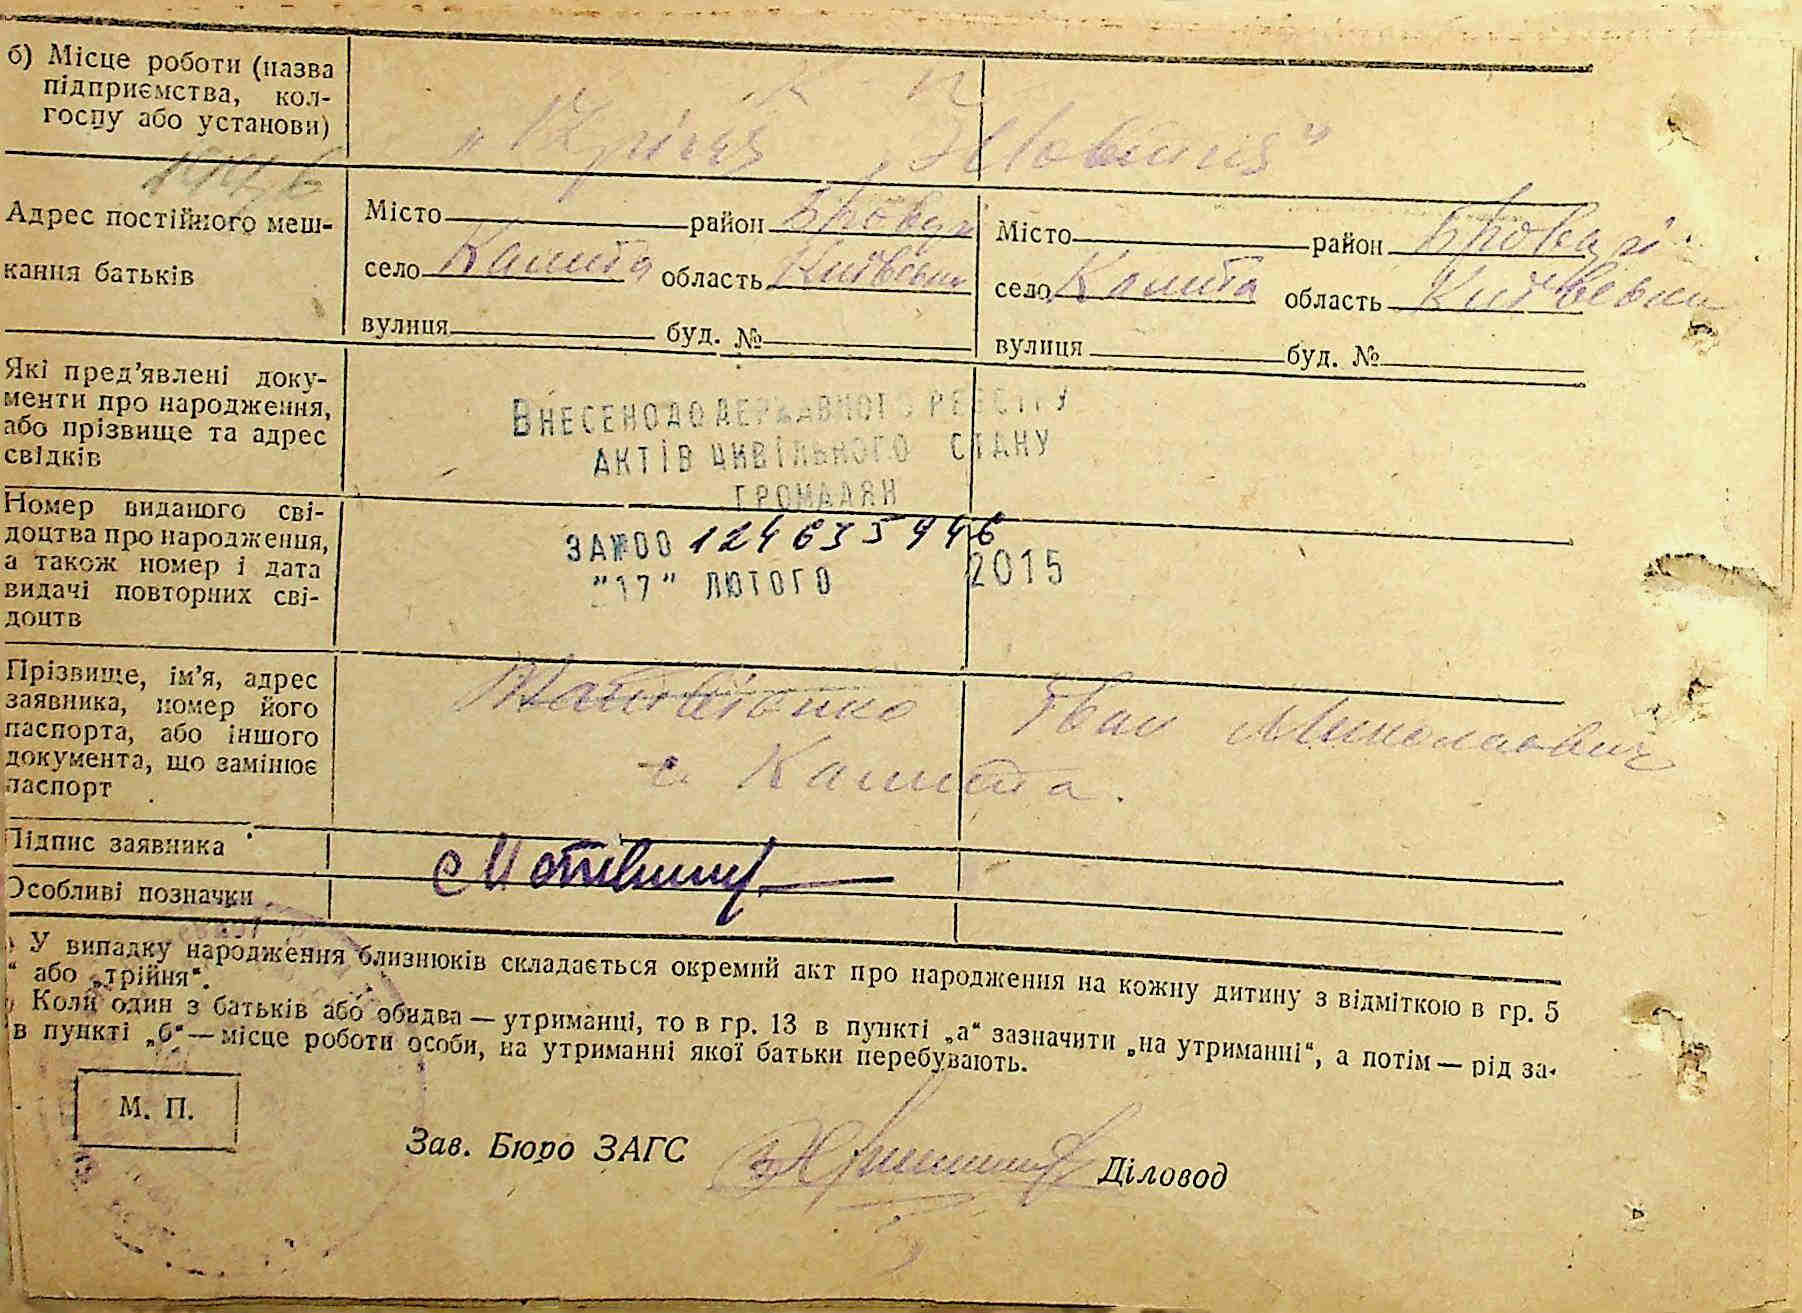 б) Місце роботи (назва
підприємства, кол-
госпу або установи)
К П
Жовтня"
Адрес постійного меш-
кання батьків
Місто район Бровар
село Калита область Київськ
вулиця буд. №
Місто район Броварі
село Калита область Київськ
вулиця буд. №
Які пред'явлені доку-
менти про народження,
або прізвище та адрес
свідків
ВНЕСЕНО ДО ДЕРЖАВНОГО РЕЄСТРУ
АКТІВ ЦИВІЛЬНОГО СТАНУ
ГРОМАДЯН
ЗА №00 124635946
"17" ЛЮТОГО 2015
Номер виданого сві-
доцтва про народження,
а також номер і дата
видачі повторних сві-
доцтв
Прізвище, ім'я, адрес
заявника, номер його
паспорта, або іншого
документа, що замінює
паспорт
Іван Миколаович
с. Калита.
Підпис заявника
Особливі позначки
) У випадку народження близнюків складається окремий акт про народження на кожну дитину з відміткою в гр. 5
" або „трійня".
) Коли один з батьків або обидва — утриманці, то в гр. 13 в пункті „а" зазначити „на утриманні", а потім — рід за-
в пункті „б" — місце роботи особи, на утриманні якої батьки перебувають.
М. П.
Зав. Бюро ЗАГС
Діловод